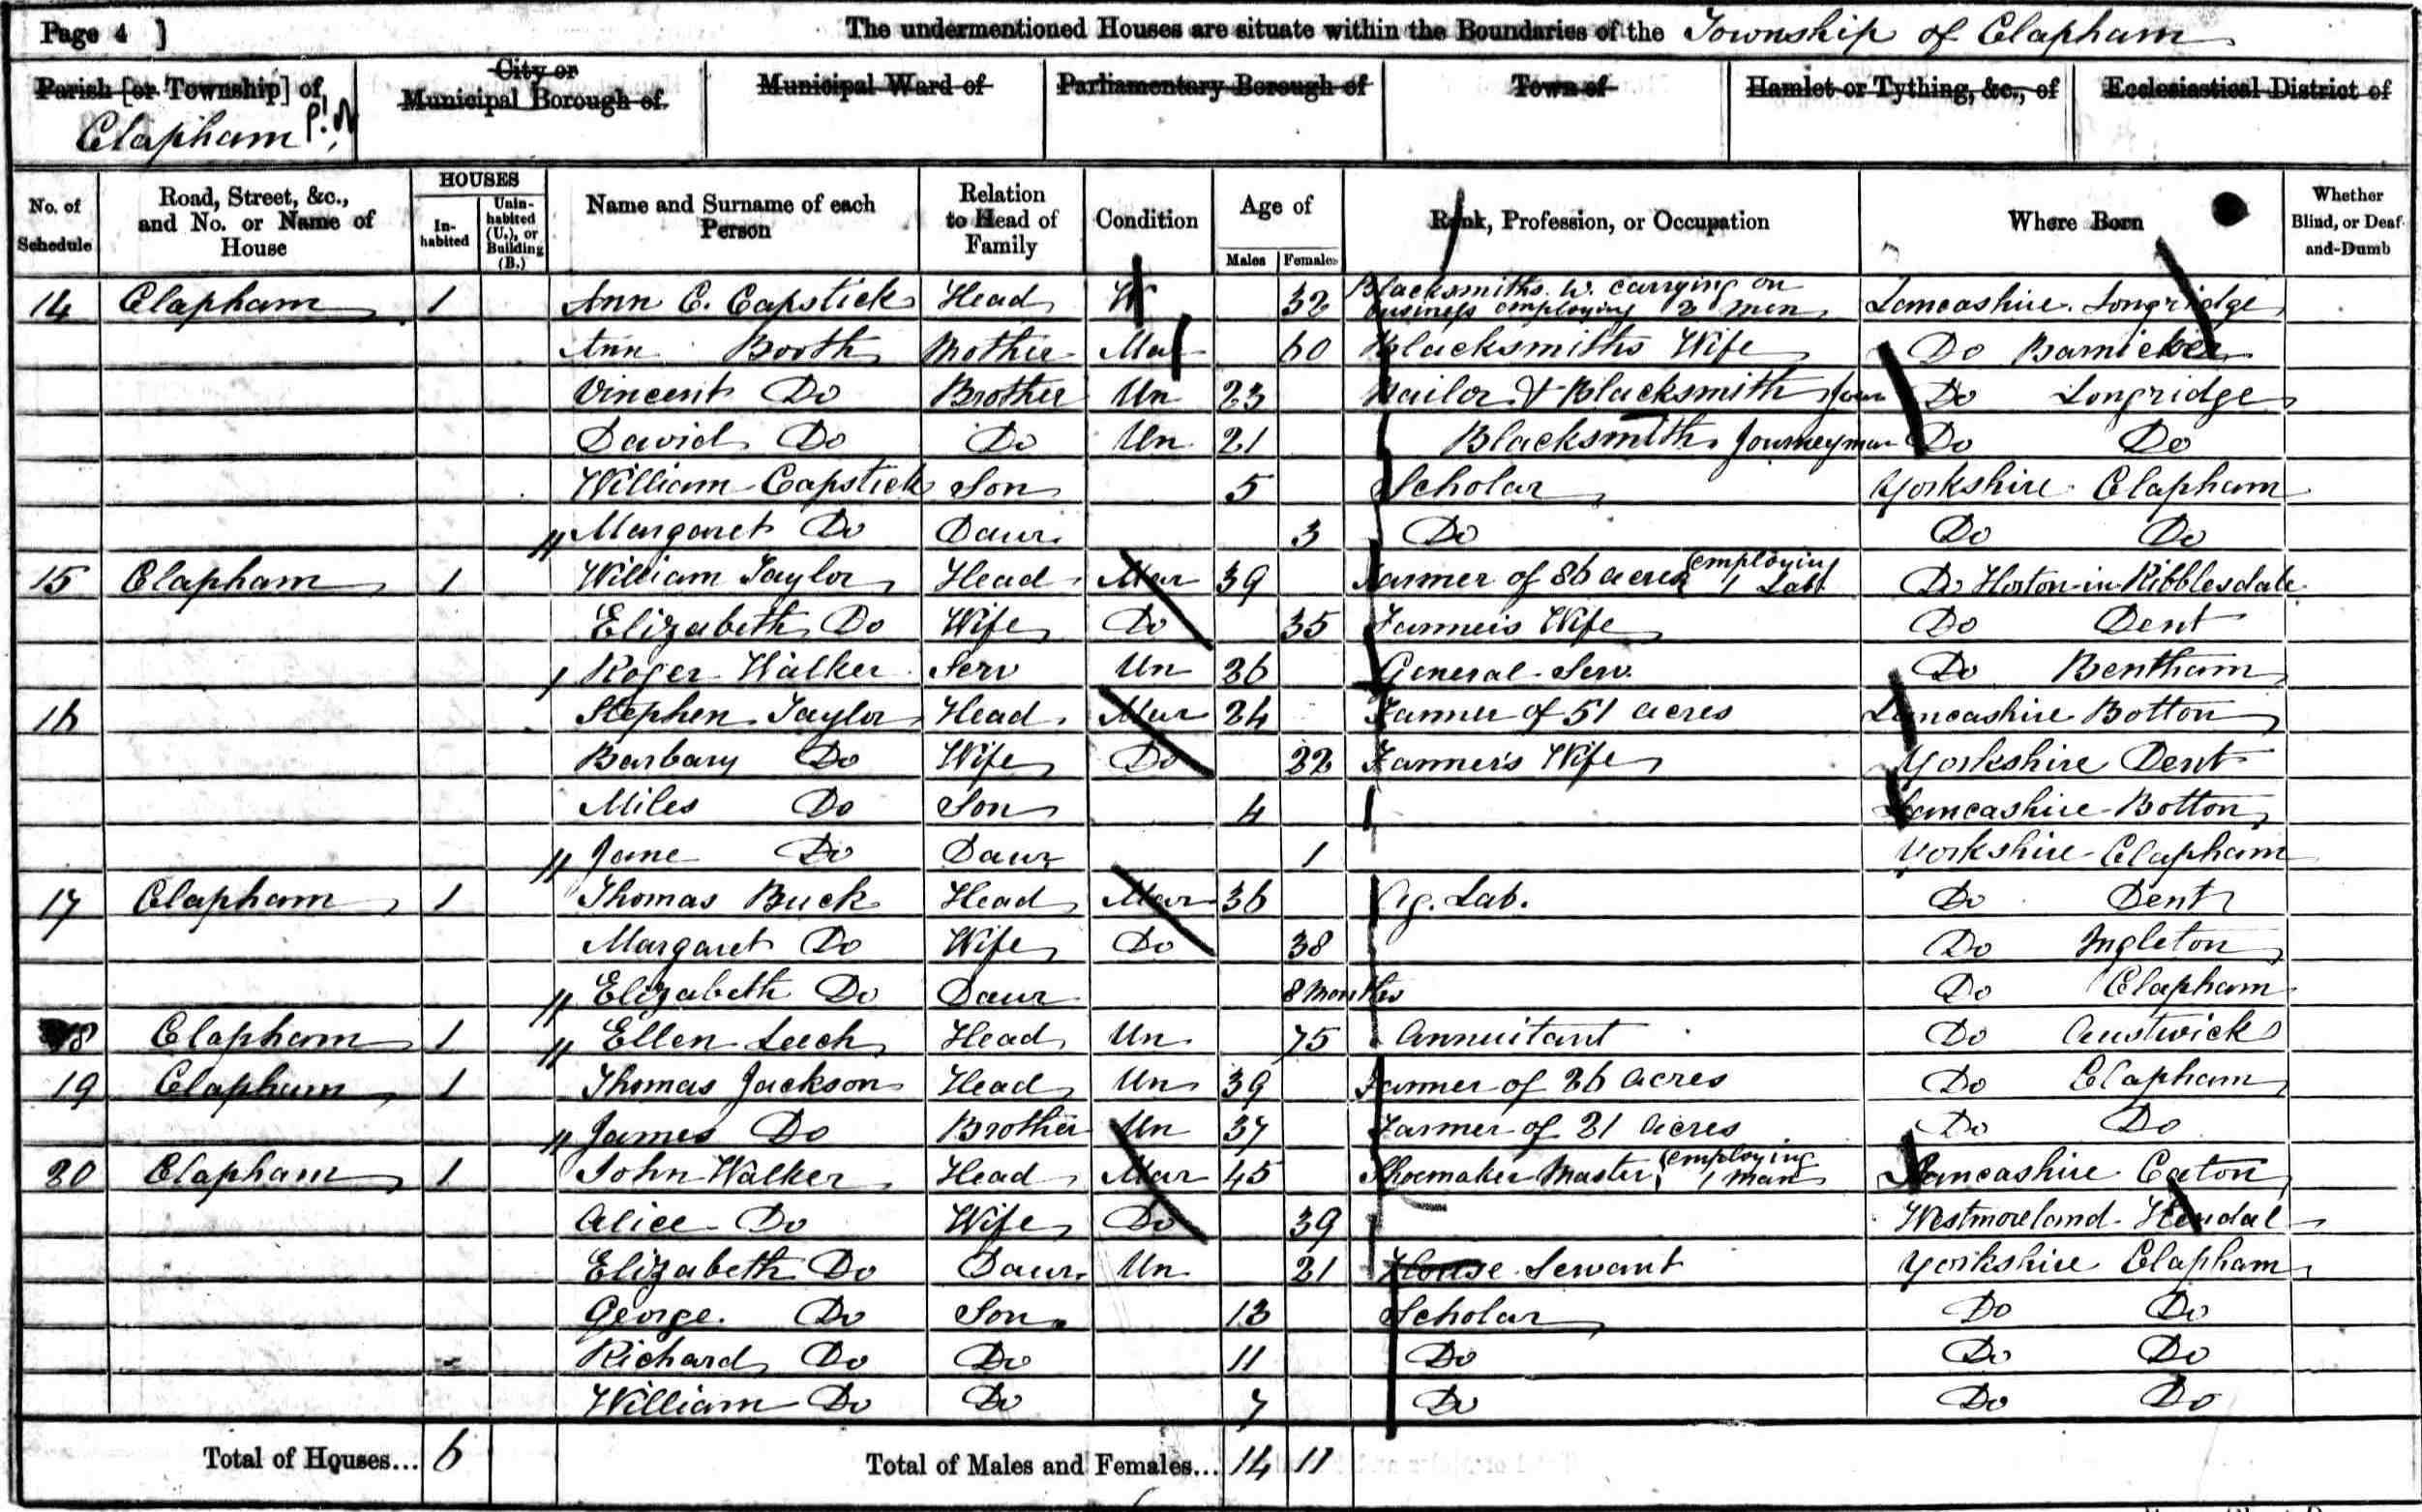 Page 4 ] The undermentioned Houses are situate within the Boundaries of the Township of Clapham
Parish [or Township] of Clapham City or Municipal Borough of Municipal Ward of Parliamentary Borough of Town of Hamlet or Tything, &c., of Ecclesiastical District of
No. of Schedule Road, Street, &c., and No. or Name of House HOUSES Inhabited Uninhabited (U.), or Building (B.) Name and Surname of each Person Relation to Head of Family Condition Age of Males Females Rank, Profession, or Occupation Where Born Whether Blind, or Deaf-and-Dumb
14 Clapham 1 Ann C. Capstick Head W 32 Blacksmiths W. carrying on business employing 2 men Lancashire Longridge
Ann Booth Mother Mar 60 Blacksmiths Wife Do
Vincent Do Brother Un 23 Nailor & Blacksmith Jour Do Longridge
David Do Do Un 21 Blacksmith Journeyman Do Do
William Capstick Son 5 Scholar Yorkshire Clapham
Margaret Do Daur 3 Do Do Do
15 Clapham 1 William Taylor Head Mar 39 Farmer of 86 acres (employing 1 Lab Do Horton-in-Ribblesdale
Elizabeth Do Wife Do 35 Farmer's Wife Do Dent
Roger Walker Serv Un 26 General Serv. Do Bentham
16 Stephen Taylor Head Mar 24 Farmer of 51 acres Lancashire Botton
Barbary Do Wife Do 22 Farmer's Wife Yorkshire Dent
Miles Do Son 4 Lancashire Botton
Jane Do Daur 1 Yorkshire Clapham
17 Clapham 1 Thomas Buck Head Mar 36 Ag. Lab. Do Dent
Margaret Do Wife Do 38 Do Ingleton
Elizabeth Do Daur 8 Months Do Clapham
18 Clapham 1 Ellen Leech Head Un 75 Annuitant Do Austwick
19 Clapham 1 Thomas Jackson Head Un 39 Farmer of 26 acres Do Clapham
James Do Brother Un 37 Farmer of 21 acres Do Do
20 Clapham 1 John Walker Head Mar 45 Shoemaker Master (employing 1 man Lancashire Caton
Alice Do Wife Do 39 Westmoreland Kendal
Elizabeth Do Daur Un 21 House Servant Yorkshire Clapham
George Do Son 13 Scholar Do Do
Richard Do Do 11 Do Do Do
William Do Do 7 Do Do Do
Total of Houses... 6 Total of Males and Females... 14 11